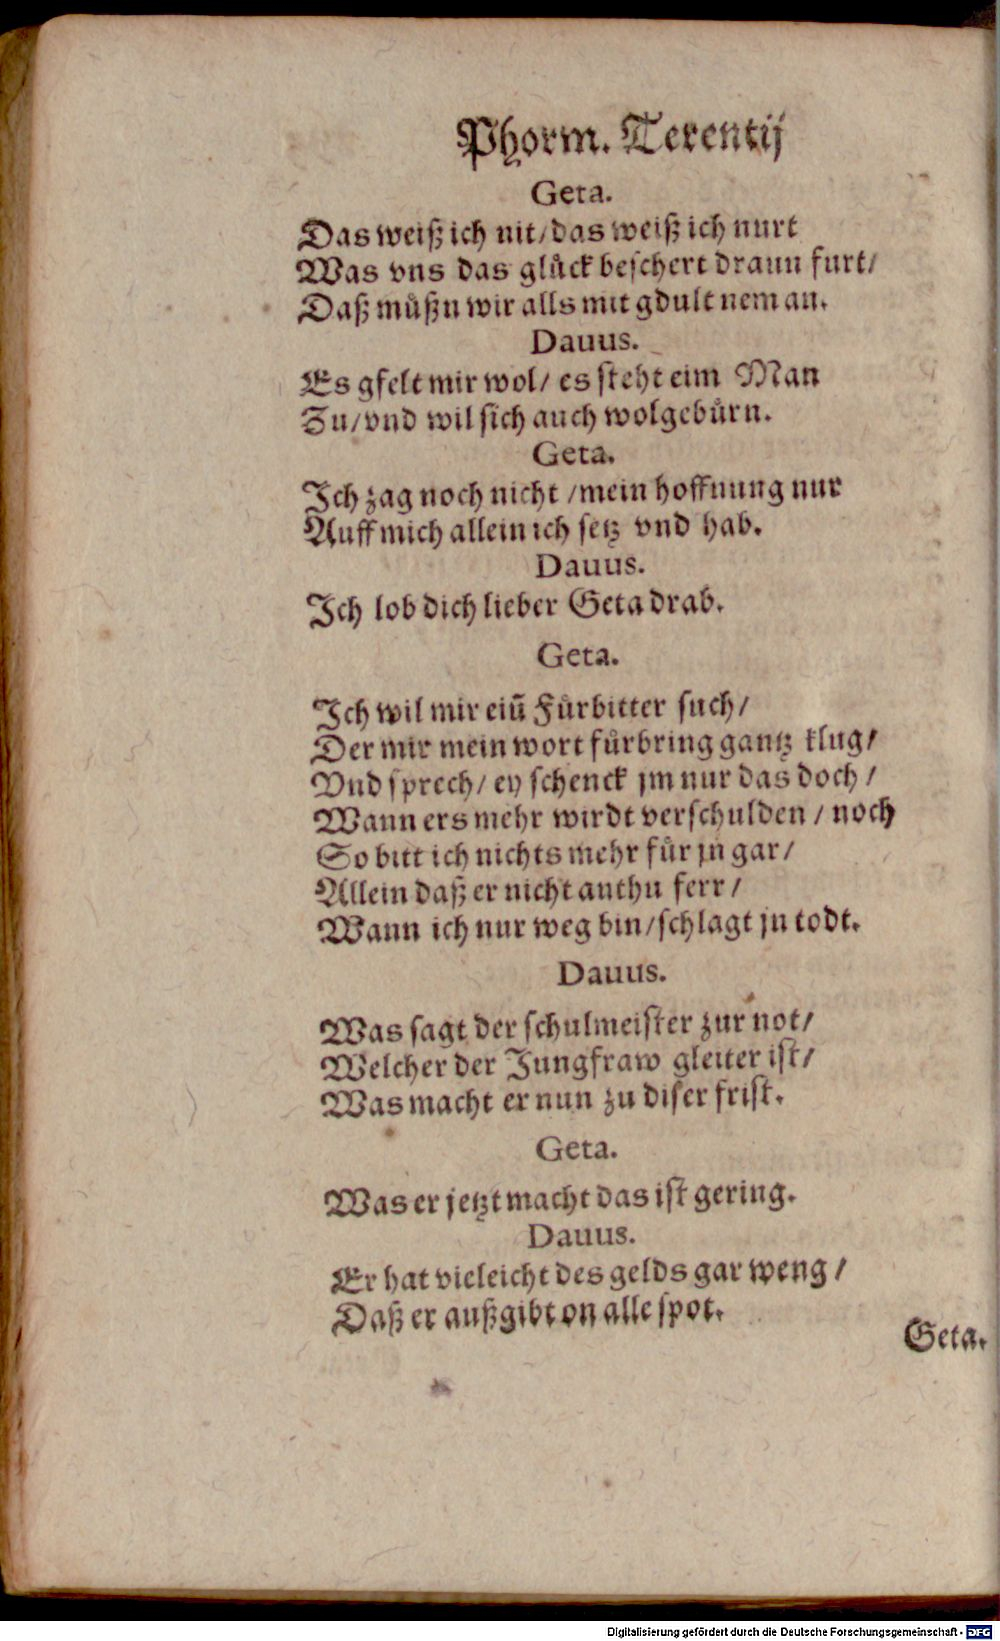 Phorm. Terentij
Geta.
Das weiß ich nit/das weiß ich nurt
Was vns das glůck beschert drann furt/
Daß můßn wir alls mit gdult nem an.
Dauus.
Es gfelt mir wol/ es steht eim Man
Zu/vnd wil sich auch wolgebůrn.
Geta.
Ich zag noch nicht /mein hoffnung nur
Auff mich allein ich setz vnd hab.
Dauus.
Ich lob dich lieber Geta drab.
Geta.
Ich wil mir ein̄ Fůrbitter such/
Der mir mein wort fůrbring gantz klug/
Vnd sprech/ ey schenck jm nur das doch /
Wann ers mehr wirdt verschulden / noch
So bitt ich nichts mehr fůr jn gar/
Allein daß er nicht anthu ferr /
Wann ich nur weg bin/schlagt jn todt.
Dauus.
Was sagt der schulmeister zur not/
Welcher der Jungfraw gleiter ist/
Was macht er nun zu diser frist.
Geta.
Was er jetzt macht das ist gering.
Dauus.
Er hat vieleicht des gelds gar weng /
Daß er außgibt on alle spot.
Geta.
Digitalisierung gefördert durch die Deutsche Forschungsgemeinschaft - DFG